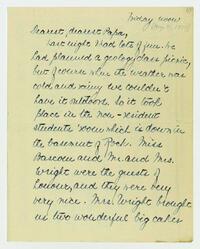 Friday noon
Dearest, dearest Papa,
Last night I had lots of fun. We
had planned a geology class picnic,
but of course when the weather was
cold and rainy we couldn't
have it outdoors. So it took
place in the non-resident
students' room which is down in
the basement of Rock. Miss
Bascom and Mr. and Mrs.
Wright were the guests of
honour, and they were very
very nice. Mrs. Wright brought
us two wonderful big cakes